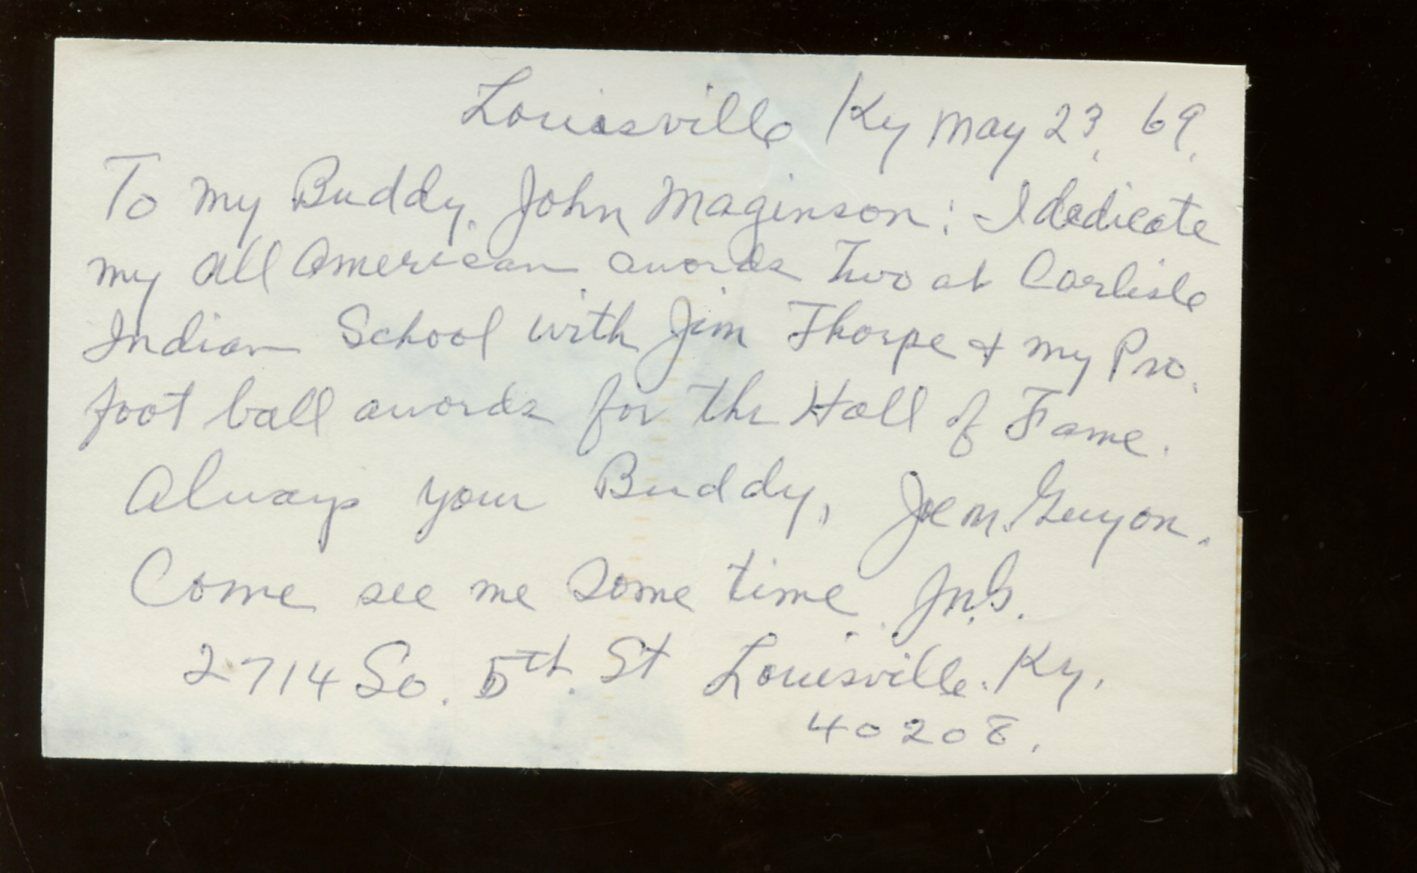 Louisville Ky May 23, 69.
To my Buddy, John Maginson: I dedicate
my all American awards Two at Carlisle
Indian School with Jim Thorpe & my Pro.
foot ball awards for the Hall of Fame.
Always your Buddy, Joe M. Guyon.
Come see me some time J.M.G.
2714 So. 5th. St Louisville. Ky.
40208.